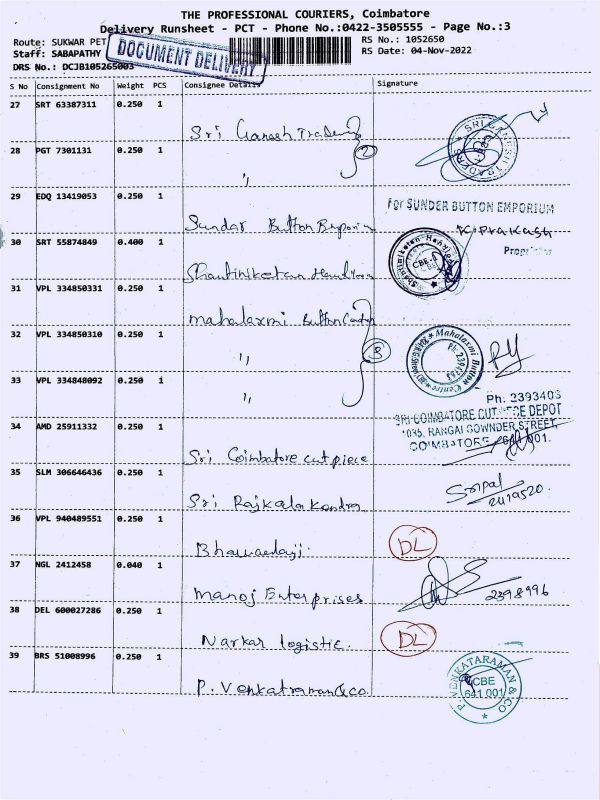 THE PROFESSIONAL COURIERS, Coimbatore
Delivery Runsheet - PCT - Phone No.:0422-3505555 - Page No.:3
Route: SUKWAR PET
RS No.: 1052650
Staff: SABAPATHY
RS Date: 04-Nov-2022
DOCUMENT DELIVERY
DRS No.: DCJB105265003
S No Consignment No Weight PCS Consignee Details Signature
27 SRT 63387311 0.250 1
Sri Ganesh Trading
SRI GANESH TRADERS
CBE
28 PGT 7301131 0.250 1
2
"
29 EDQ 13419053 0.250 1
For SUNDER BUTTON EMPORIUM
Sundar Button Emporium
K. Prakash
Proprietor
30 SRT 55874849 0.400 1
Shantiniketan Handloom
Shantiniketan
CBE-1
31 VPL 334850331 0.250 1
mahalaxmi Button Center
32 VPL 334850310 0.250 1
"
3
Mahalaxmi Button Centre
33 VPL 334848092 0.250 1
"
Ph: 2393403
SRI COIMBATORE CUTPIECE DEPOT
RANGAI GOWNDER STREET,
COIMBATORE 641 001.
34 AMD 25911332 0.250 1
Sri Coimbatore cutpiece
35 SLM 306646436 0.250 1
Sri Rajkala Kendra
Sripal
2419520.
36 VPL 940489551 0.250 1
DL
37 NGL 2412458 0.040 1
Manoj Enterprises
2398996
38 DEL 600027286 0.250 1
Narkar logistic.
DL
39 BRS 51008996 0.250 1
P. Venkatraman & co.
P. VENKATARAMAN & CO
CBE
641 001